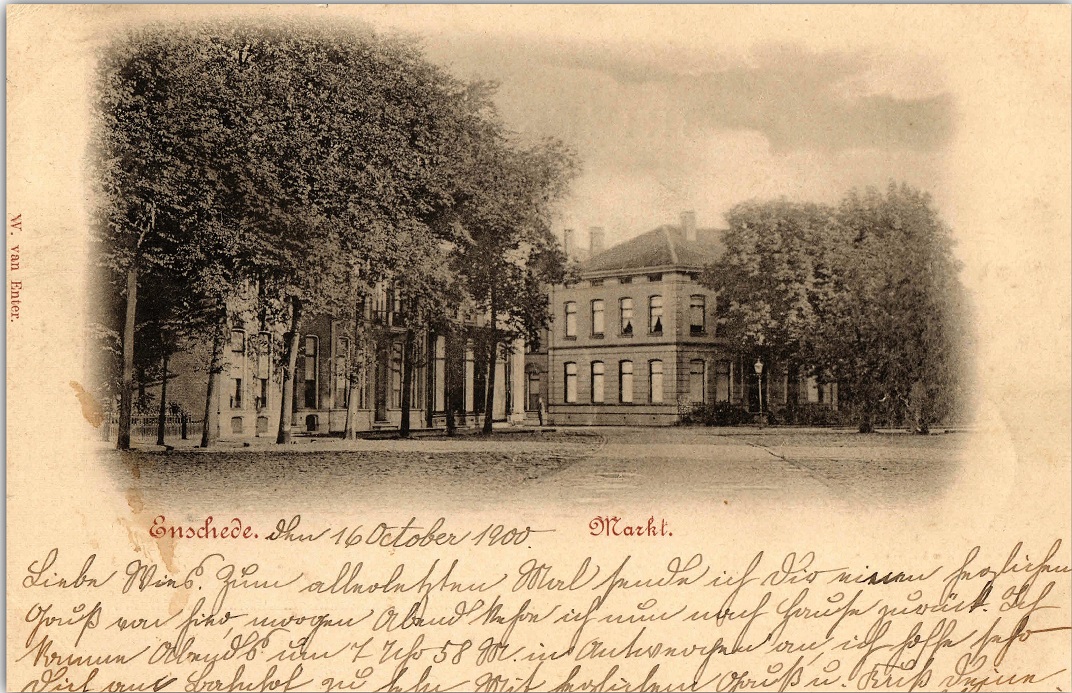 W. van Enter.
Enschede. den 16 October 1900. Markt.
Liebe Wies. Zum allerletzten Mal sende ich Dir einen herzlichen
Gruß von hier, morgen Abend kehre ich nun nach Hause zurück. Ich
komme Abends um 7 Uhr 58 M. in Antwerpen an, ich hoffe sehr
Dich am Bahnhof zu sehn. Mit herzlichem Gruß u. Kuß Deine